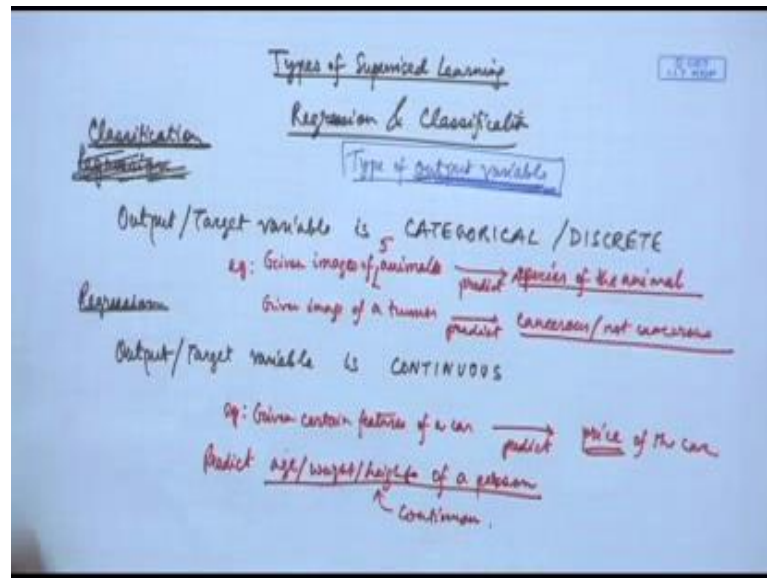 Types of Supervised Learning
Regression & Classification
Classification
Type of output variable
Output/Target variable is CATEGORICAL/DISCRETE
eg: Given images of 5 animals predict species of the animal
Given image of a tumor predict cancerous/not cancerous
Regression
Output/Target variable is CONTINUOUS
eg: Given certain features of a car predict price of the car
Predict age/weight/height of a person
continuous.